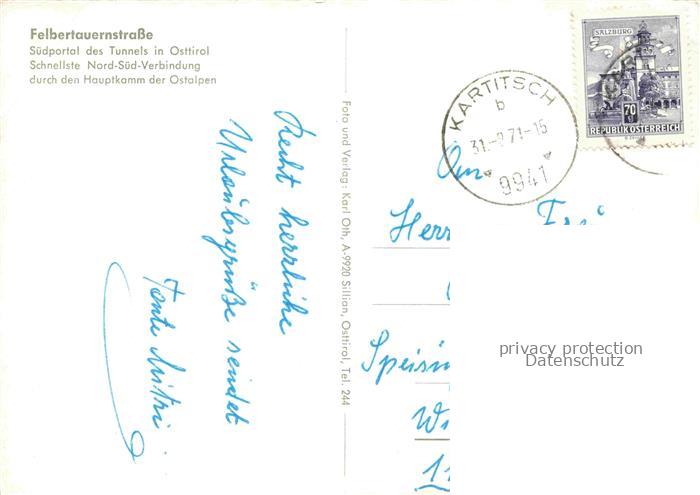 Felbertauernstraße
Südportal des Tunnels in Osttirol
Schnellste Nord-Süd-Verbindung
durch den Hauptkamm der Ostalpen
Recht herrliche
Urlaubsgrüße sendet
Tante Mitzi
Foto und Verlag: Karl Oth, A-9920 Sillian, Osttirol, Tel. 244
KARTITSCH
b
71-15
9941
SALZBURG
70
REPUBLIK ÖSTERREICH
Herr
privacy protection
Datenschutz